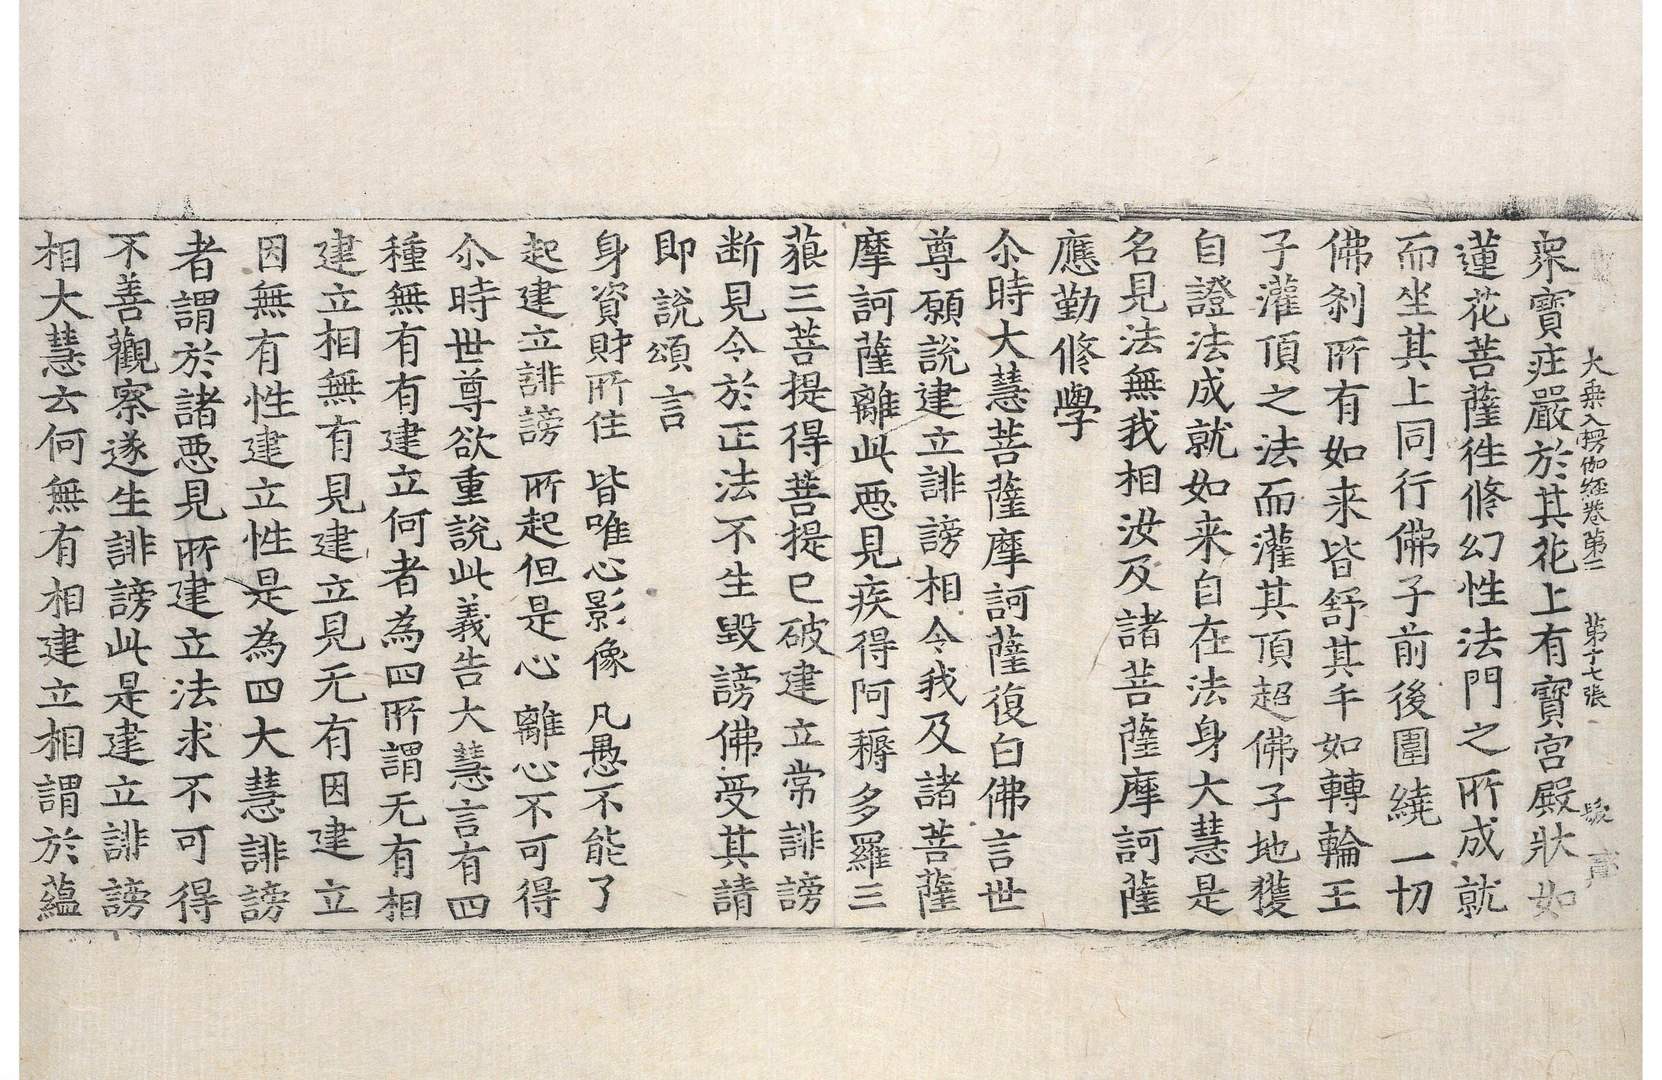 大乗入楞伽経卷第二 第十七張 髮 
衆寶庄嚴於其花上有寶宮殿狀如
蓮花菩薩徃修幻性法門之所成就
而坐其上同行佛子前後圍繞一切
佛刹所有如来皆舒其手如轉輪王
子灌頂之法而灌其頂超佛子地獲
自證法成就如来自在法身大慧是
名見法無我相汝及諸菩薩摩訶薩
應勤修學
尒時大慧菩薩摩訶薩復白佛言世
尊願説建立誹謗相令我及諸菩薩
摩訶薩離此惡見疾得阿耨多羅三
藐三菩提得菩提已破建立常誹謗
断見令於正法不生毀謗佛受其請
即説頌言
身資財所住 皆唯心影像 凡愚不能了
起建立誹謗 所起但是心 離心不可得
尒時世尊欲重説此義告大慧言有四
種無有有建立何者為四所謂无有相
建立相無有見建立見无有因建立
因無有性建立性是為四大慧誹謗
者謂於諸惡見所建立法求不可得
不善觀察遂生誹謗此是建立誹謗
相大慧云何無有相建立相謂於蘊